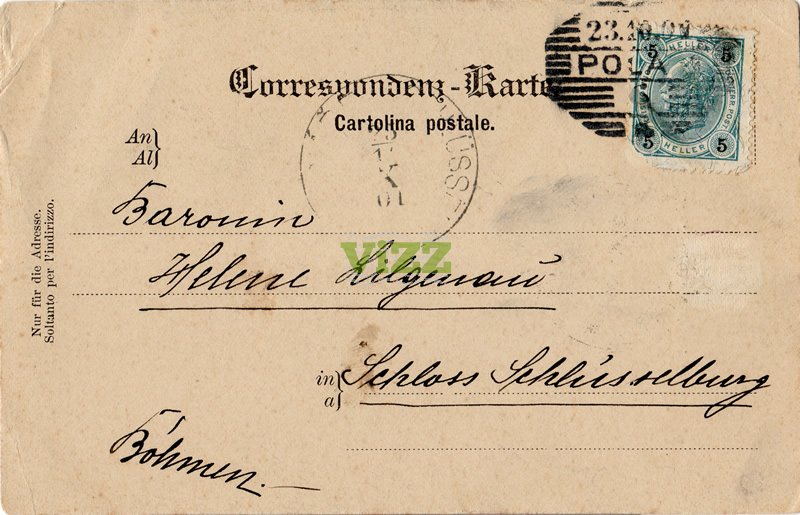 23.10.01
POLA
5 HELLER 5
5 HELLER 5
Correspondenz-Karte
Cartolina postale.
An
Al
Baronin
VIZZ
Helene Lilgenau
in
a
Schloss Schlüsselburg
Böhmen.
Nur für die Adresse.
Soltanto per l'indirizzo.